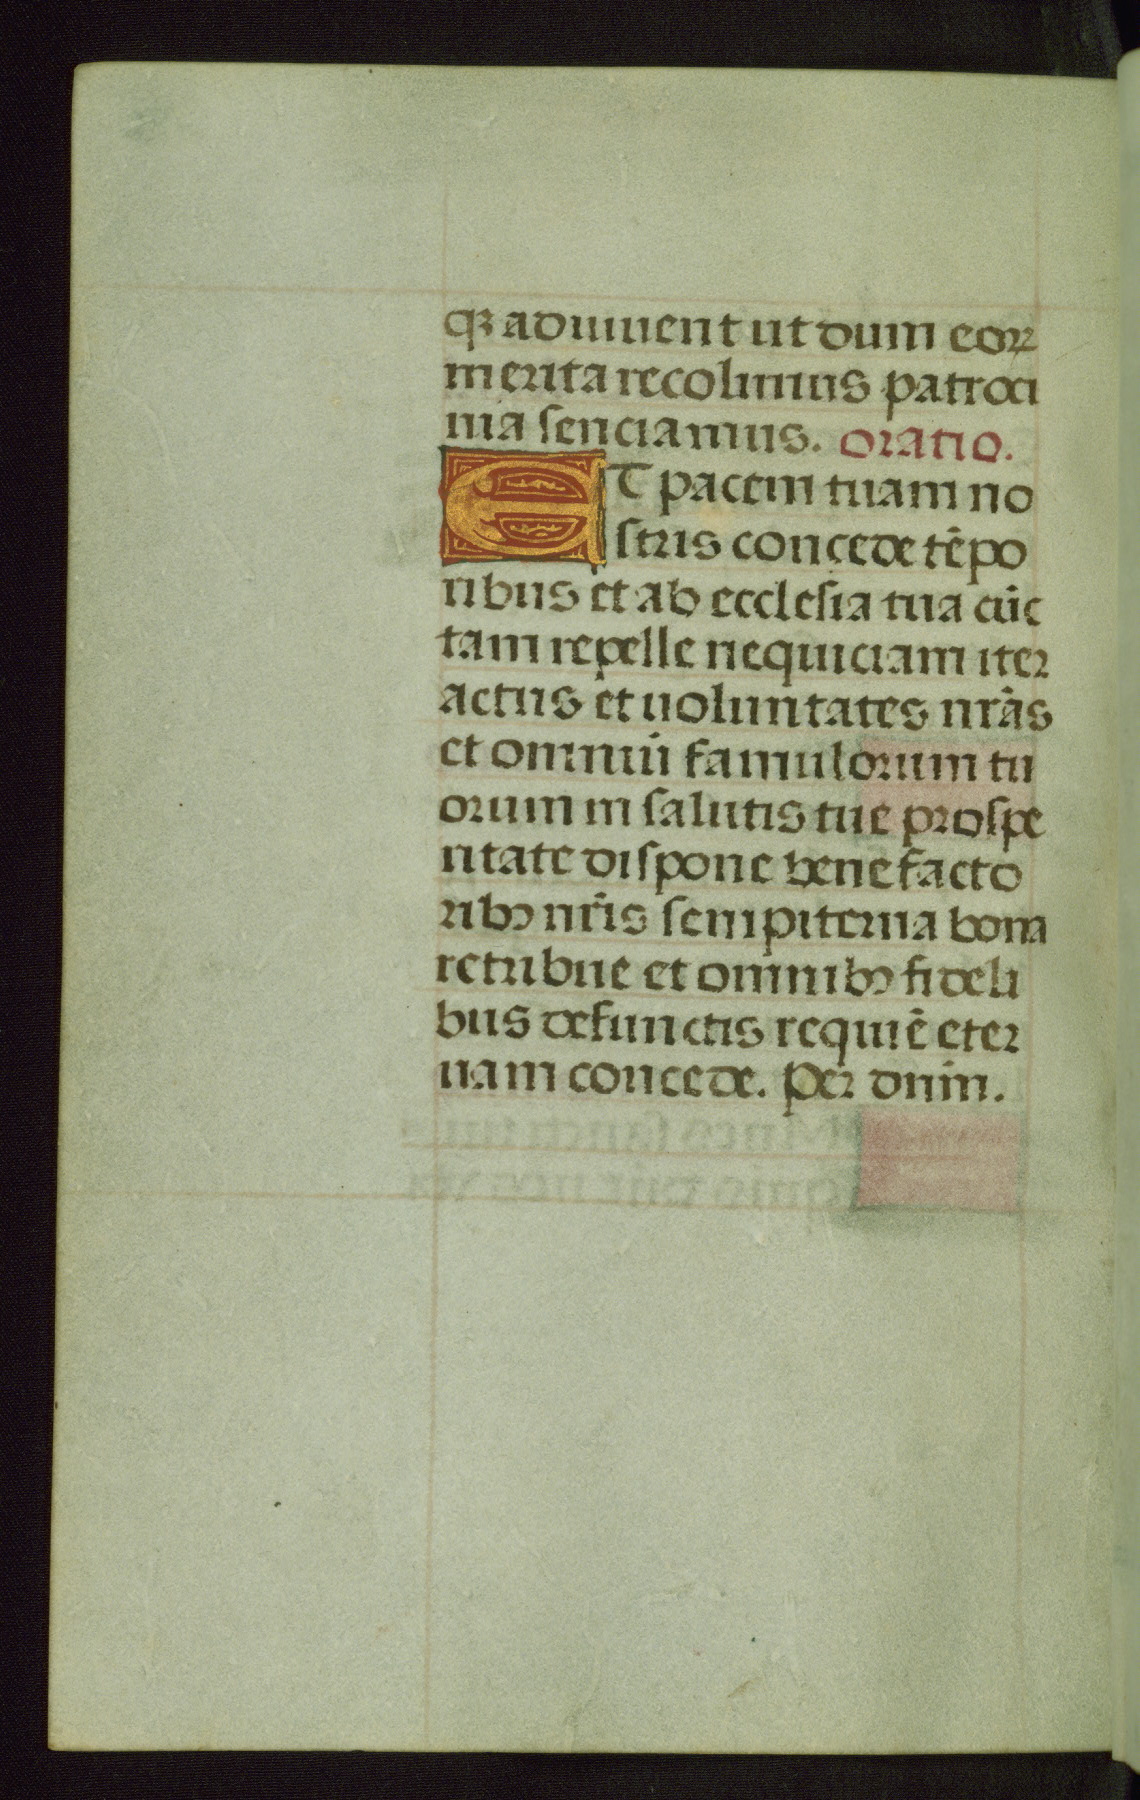 qꝫ adiuuent ut dum eoꝝ
merita recolimus patroci
nia senciamus. oratio.
ET pacem tuam no
stris concede tēpo
ribus et ab ecclesia tua cūc
tam repelle nequiciam iter
actus et uoluntates nr̄as
et omniū famulorum tu
orum in salutis tue prospe
ritate dispone benefacto
ribꝫ nr̄is sempiterna bona
retribue et omnibꝫ fideli
bus defunctis requiē eter
nam concede. Per dnm̄.